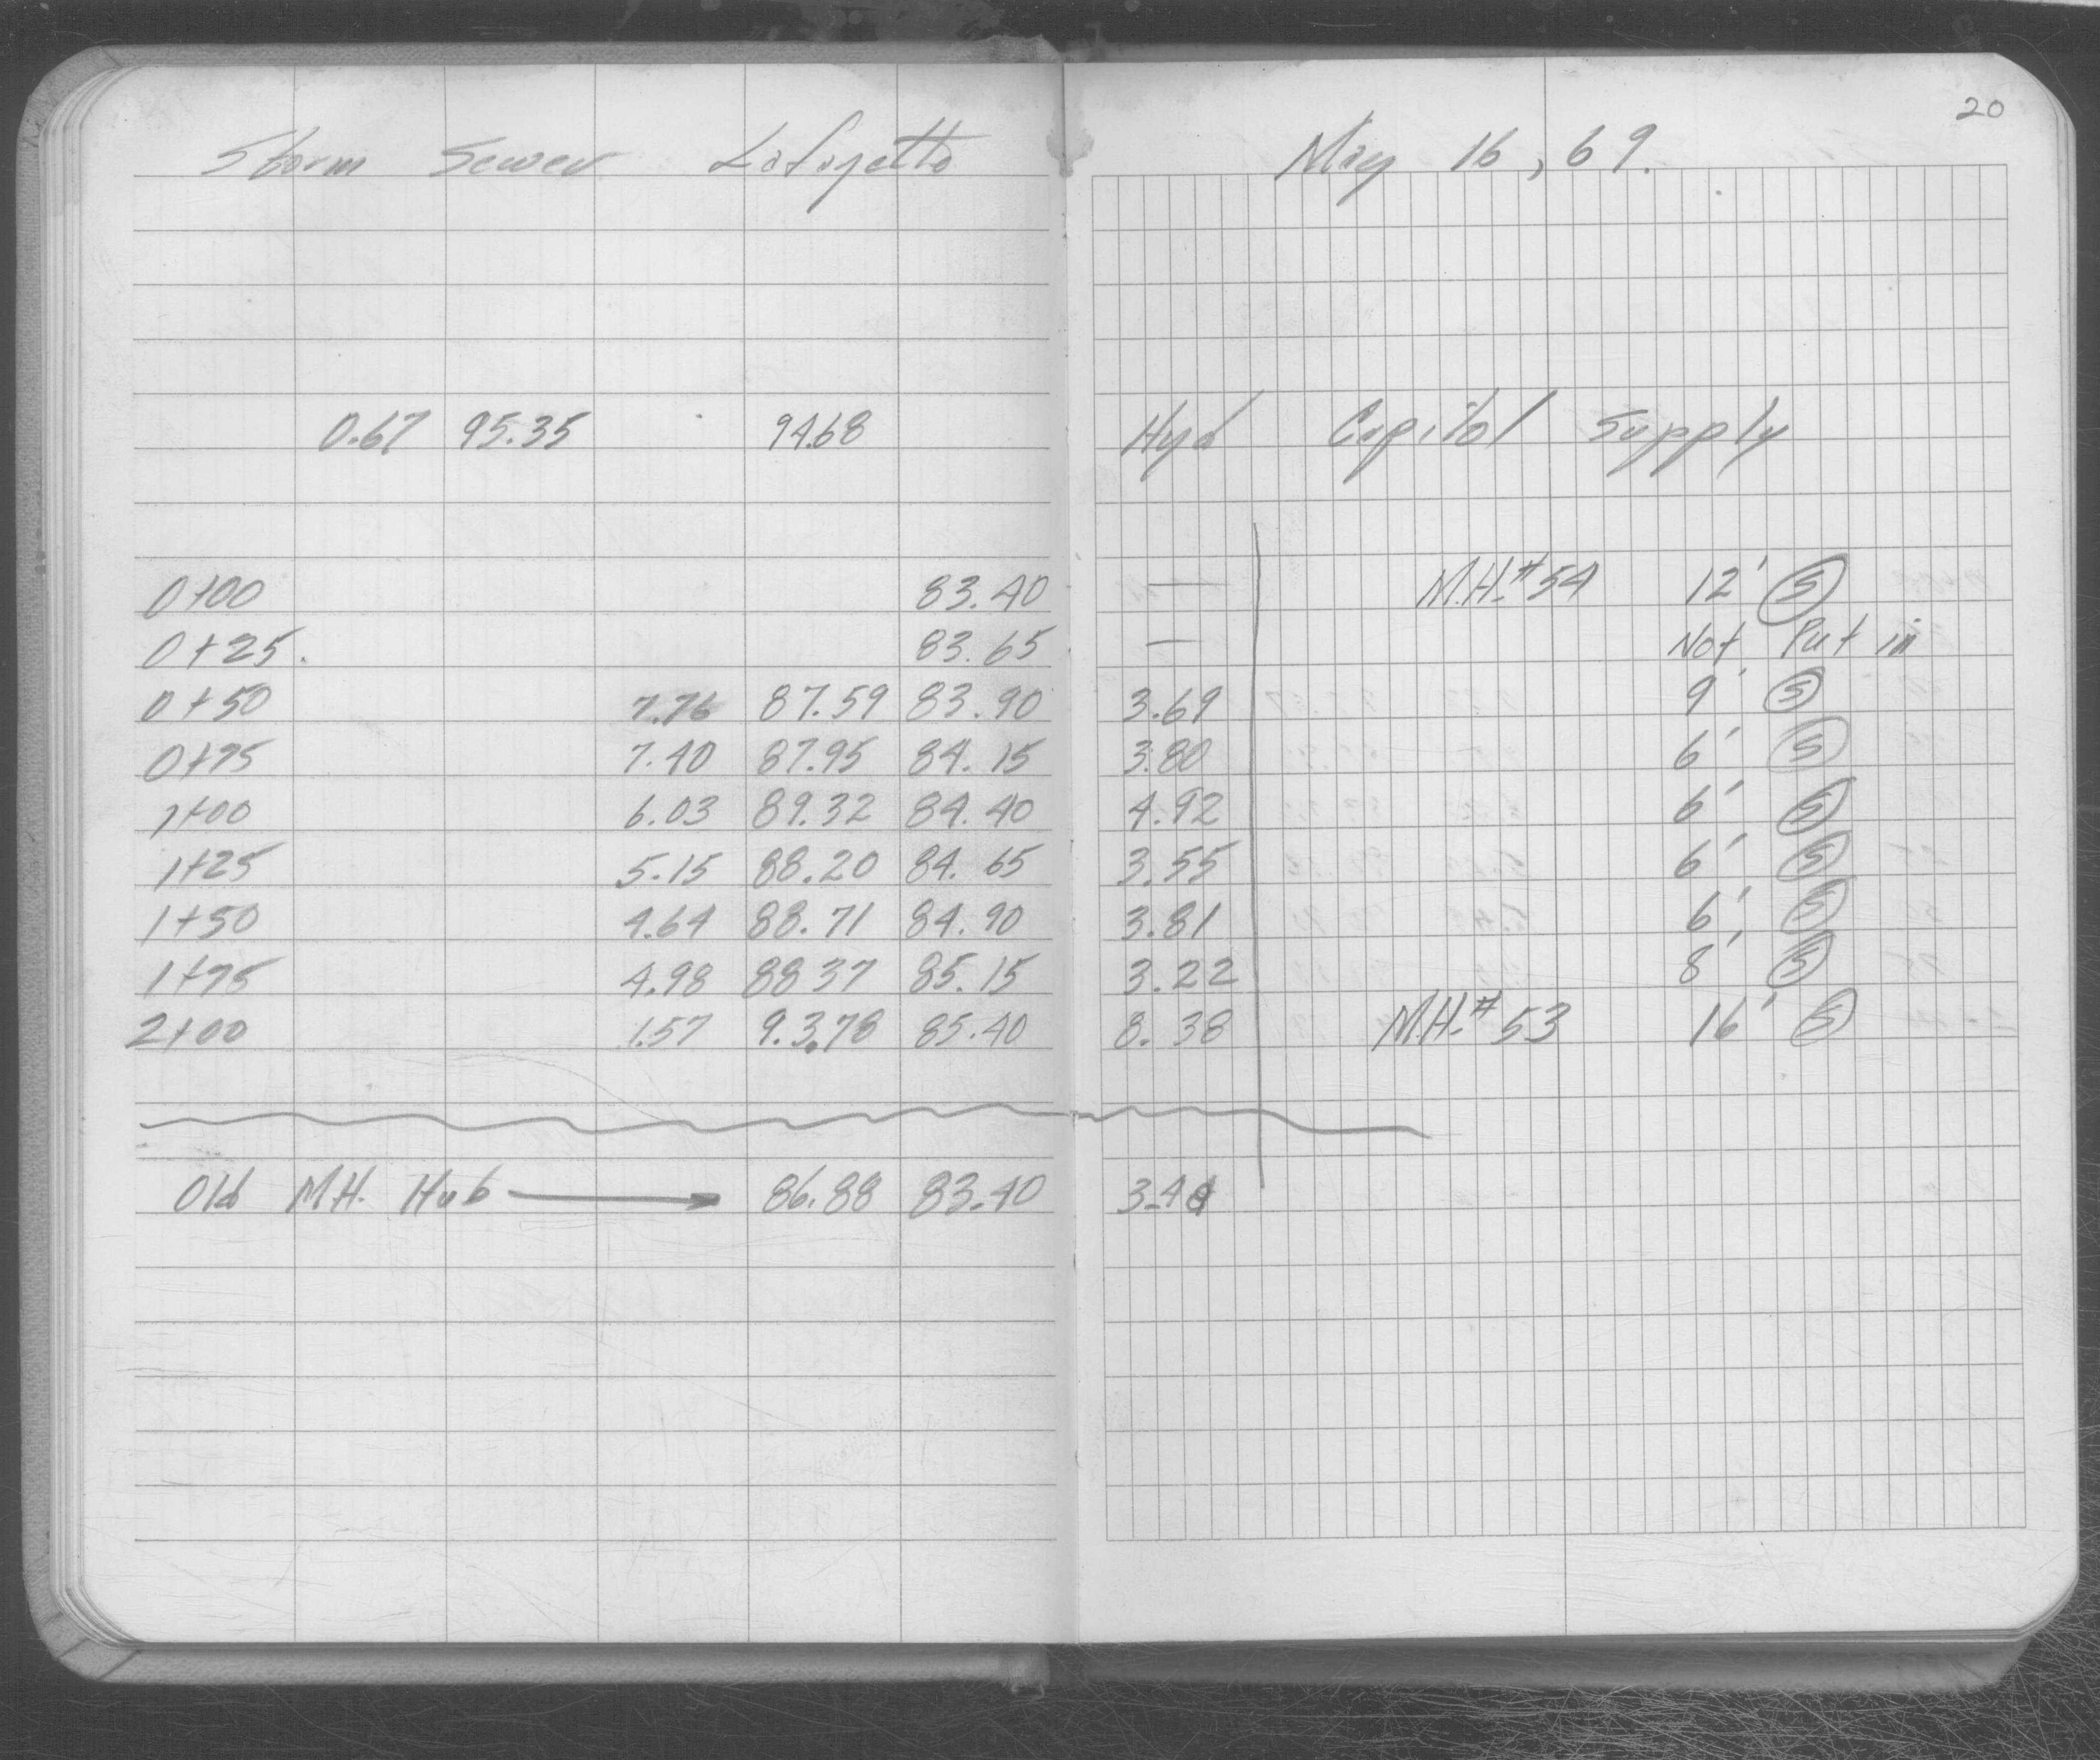 20
Storm Sewer Lafayette May 16, 69.
0.67 95.35 94.68 Hyd Capitol Supply
0+00 83.40 — M.H.#54 12' S
0+25. 83.65 — Not Put in
0+50 7.76 87.59 83.90 3.69 9' S
0+75 7.40 87.95 84.15 3.80 6' S
1+00 6.03 89.32 84.40 4.92 6' S
1+25 5.15 88.20 84.65 3.55 6' S
1+50 4.64 88.71 84.90 3.81 6' S
1+75 4.98 88 37 85.15 3.22 8' S
2+00 1.57 9.3.78 85.40 8.38 M.H.#53 16' S
Old M.H. Hub → 86.88 83.40